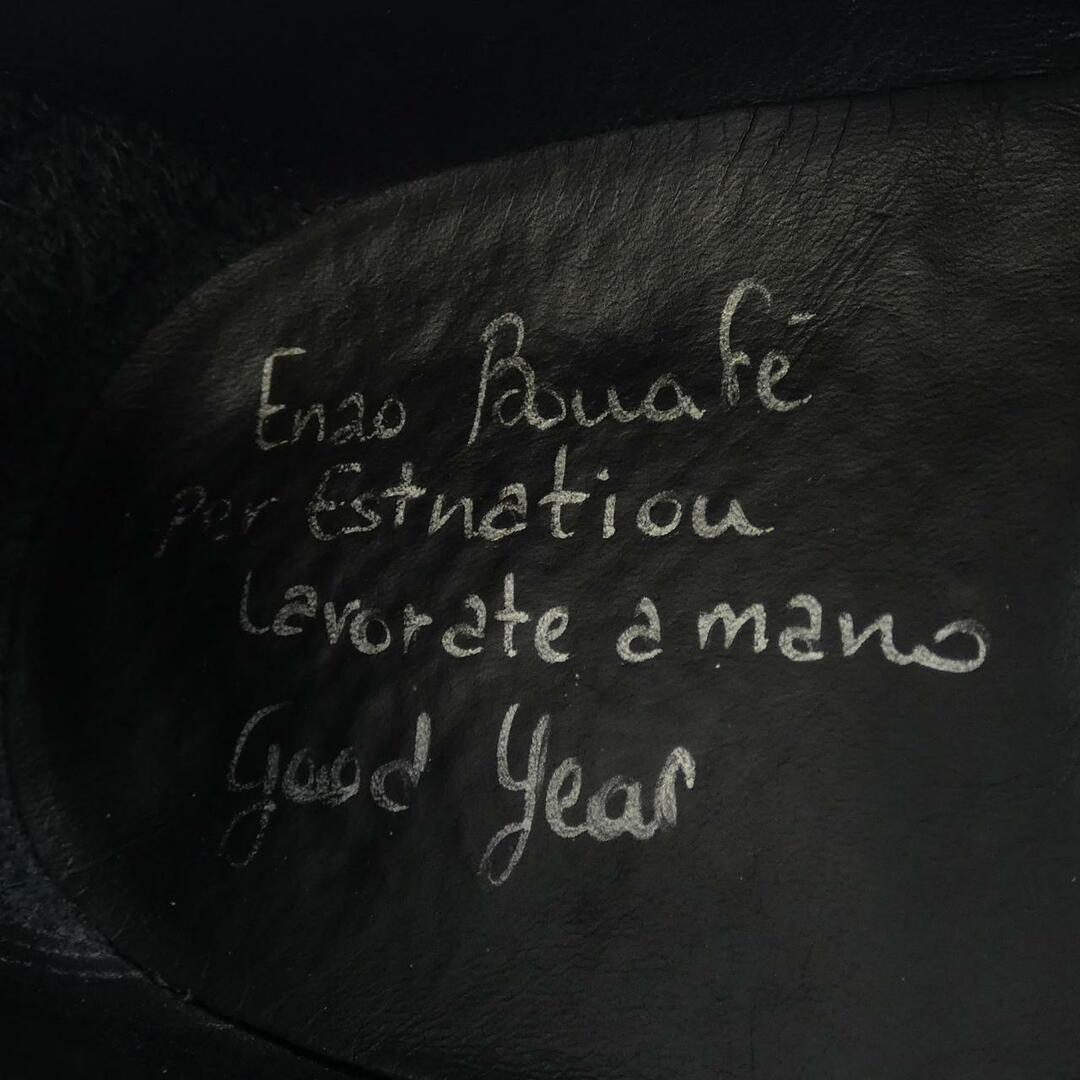 Enzo Bonafé
per Estnation
Lavorate a mano
Good Year